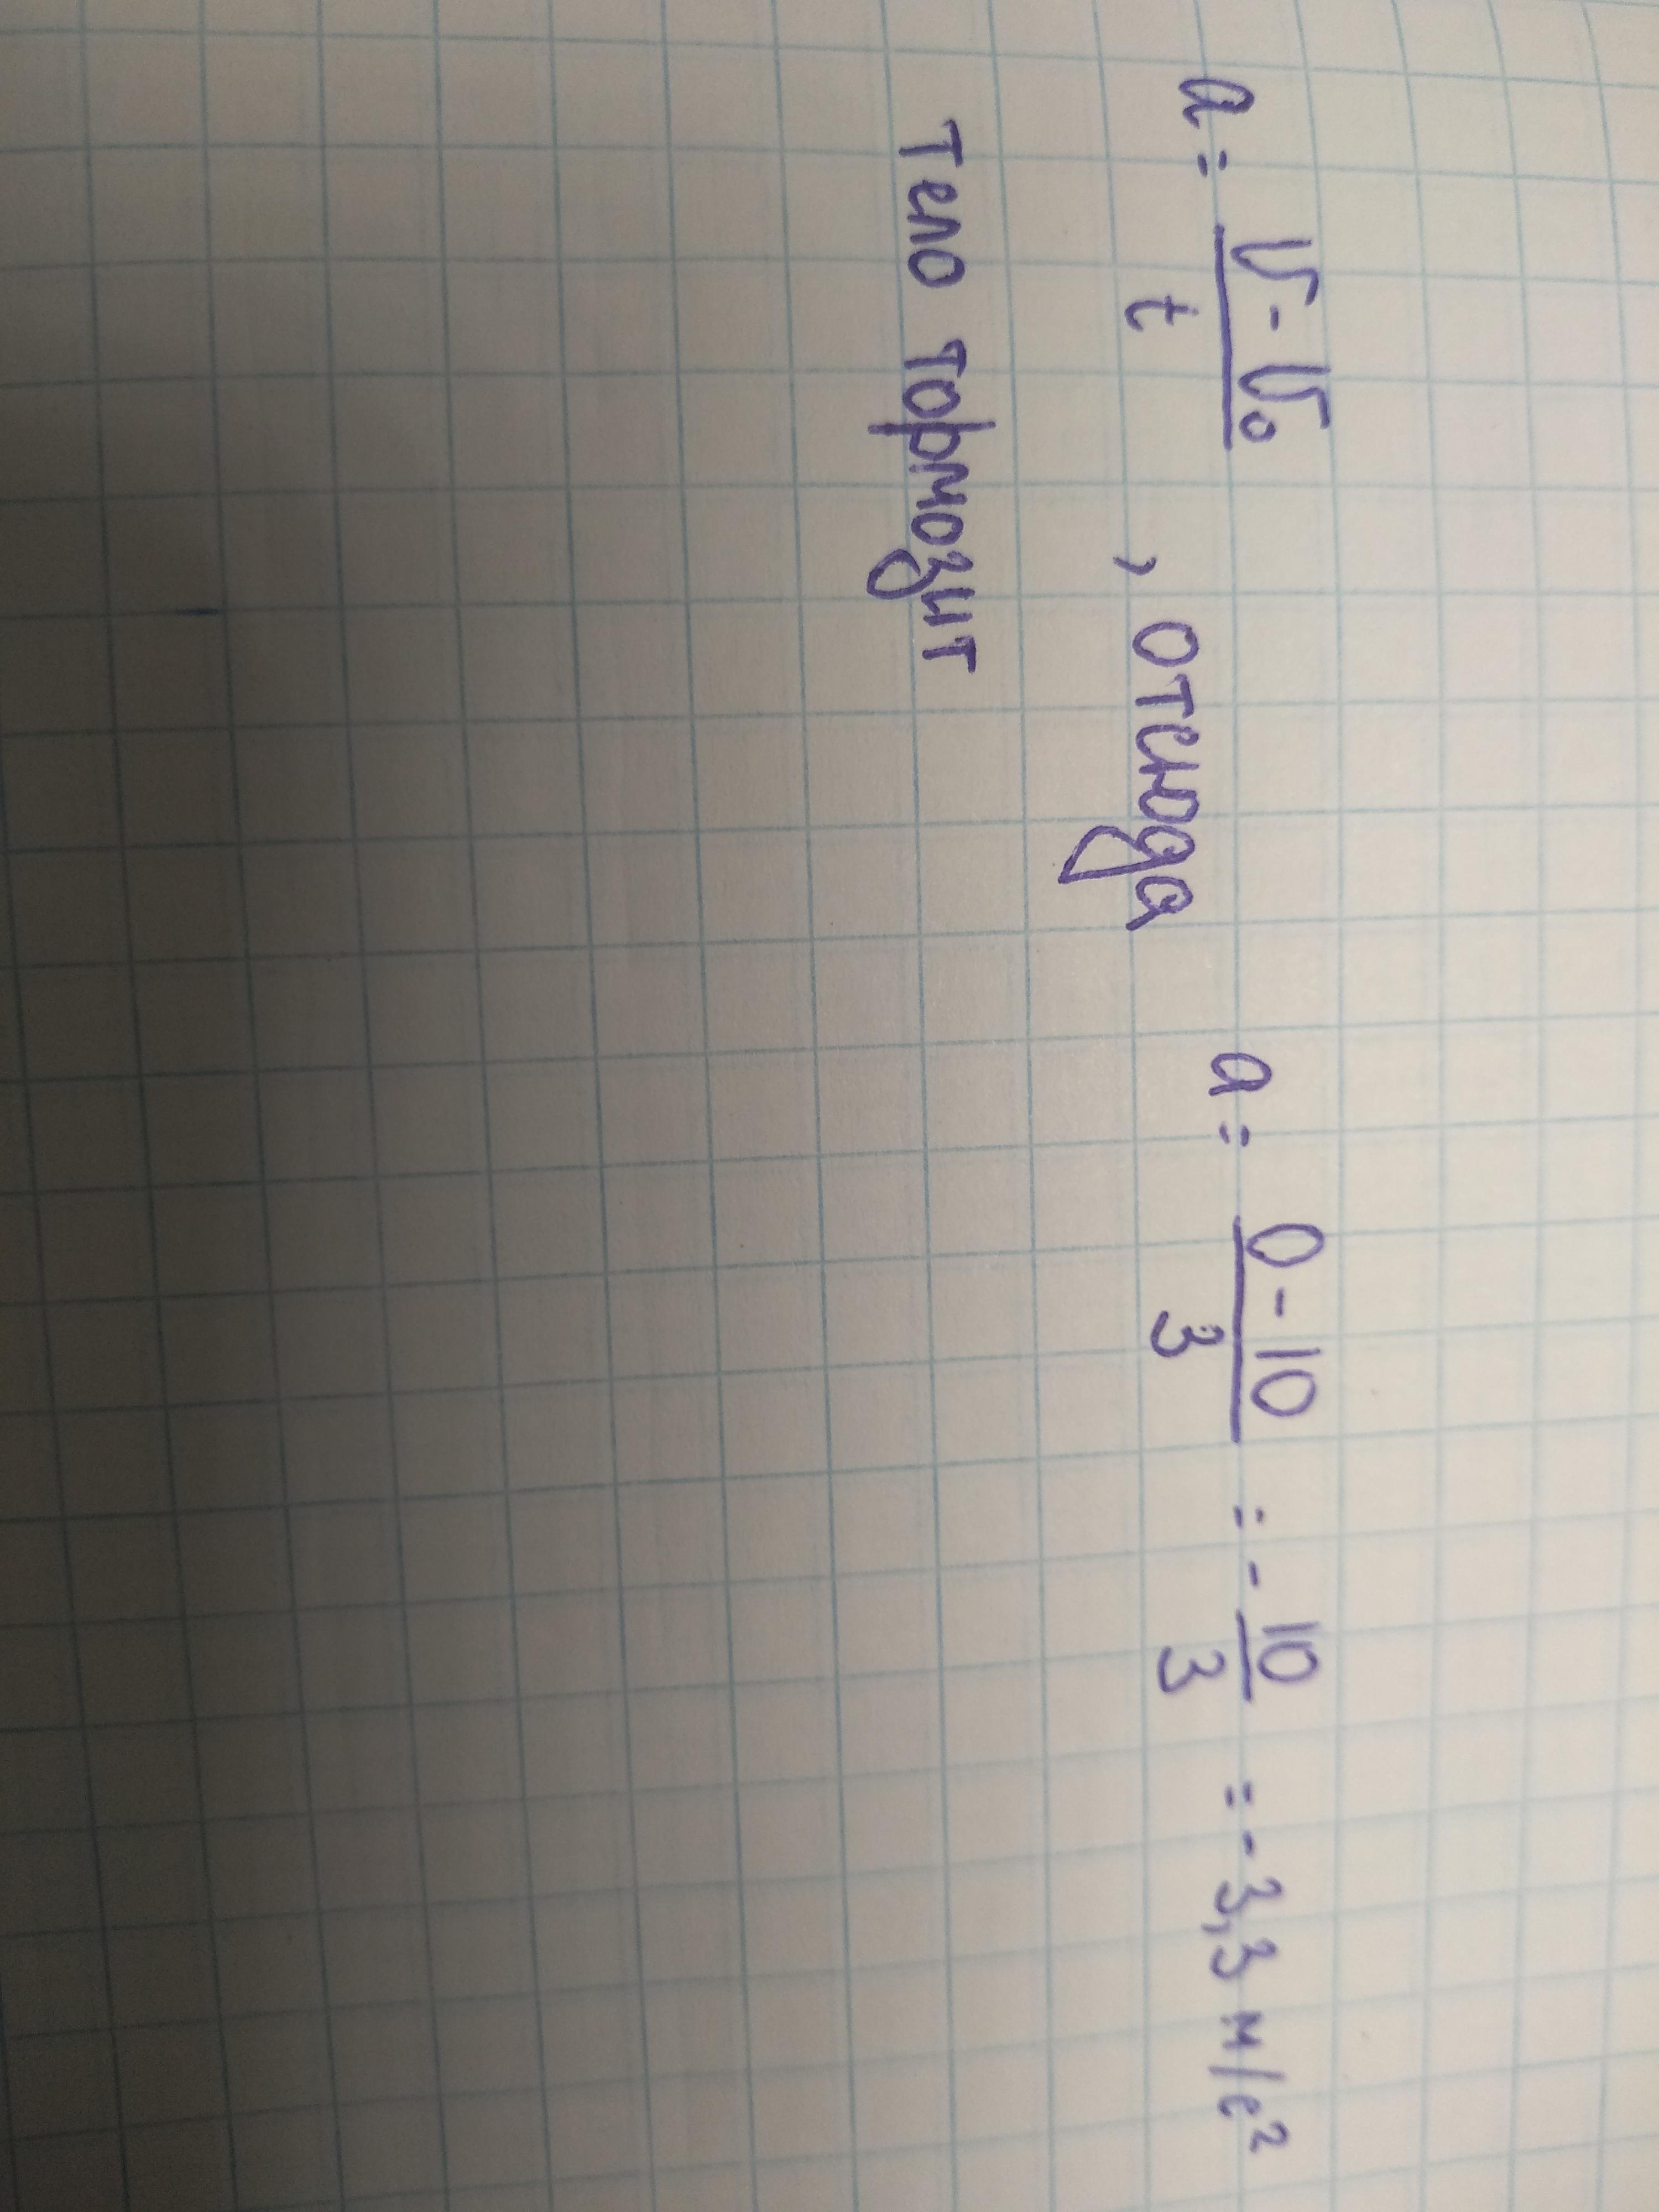 a = (V - V₀)/t , отсюда a = (0 - 10)/3 = - 10/3 = -3,3 м/с²
тело тормозит